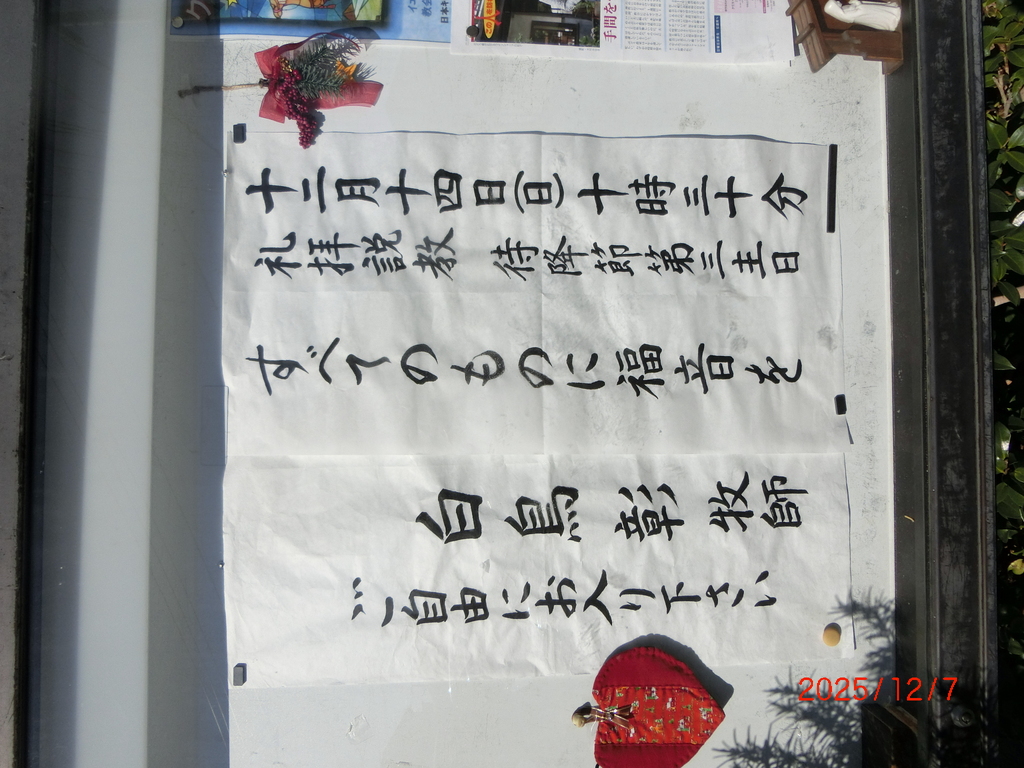 十二月十四日(日)十時三十分
礼拝説教 待降節第三主日
すべてのものに福音を
白鳥 彰 牧師
ご自由にお入り下さい
手間を
2025/12/7